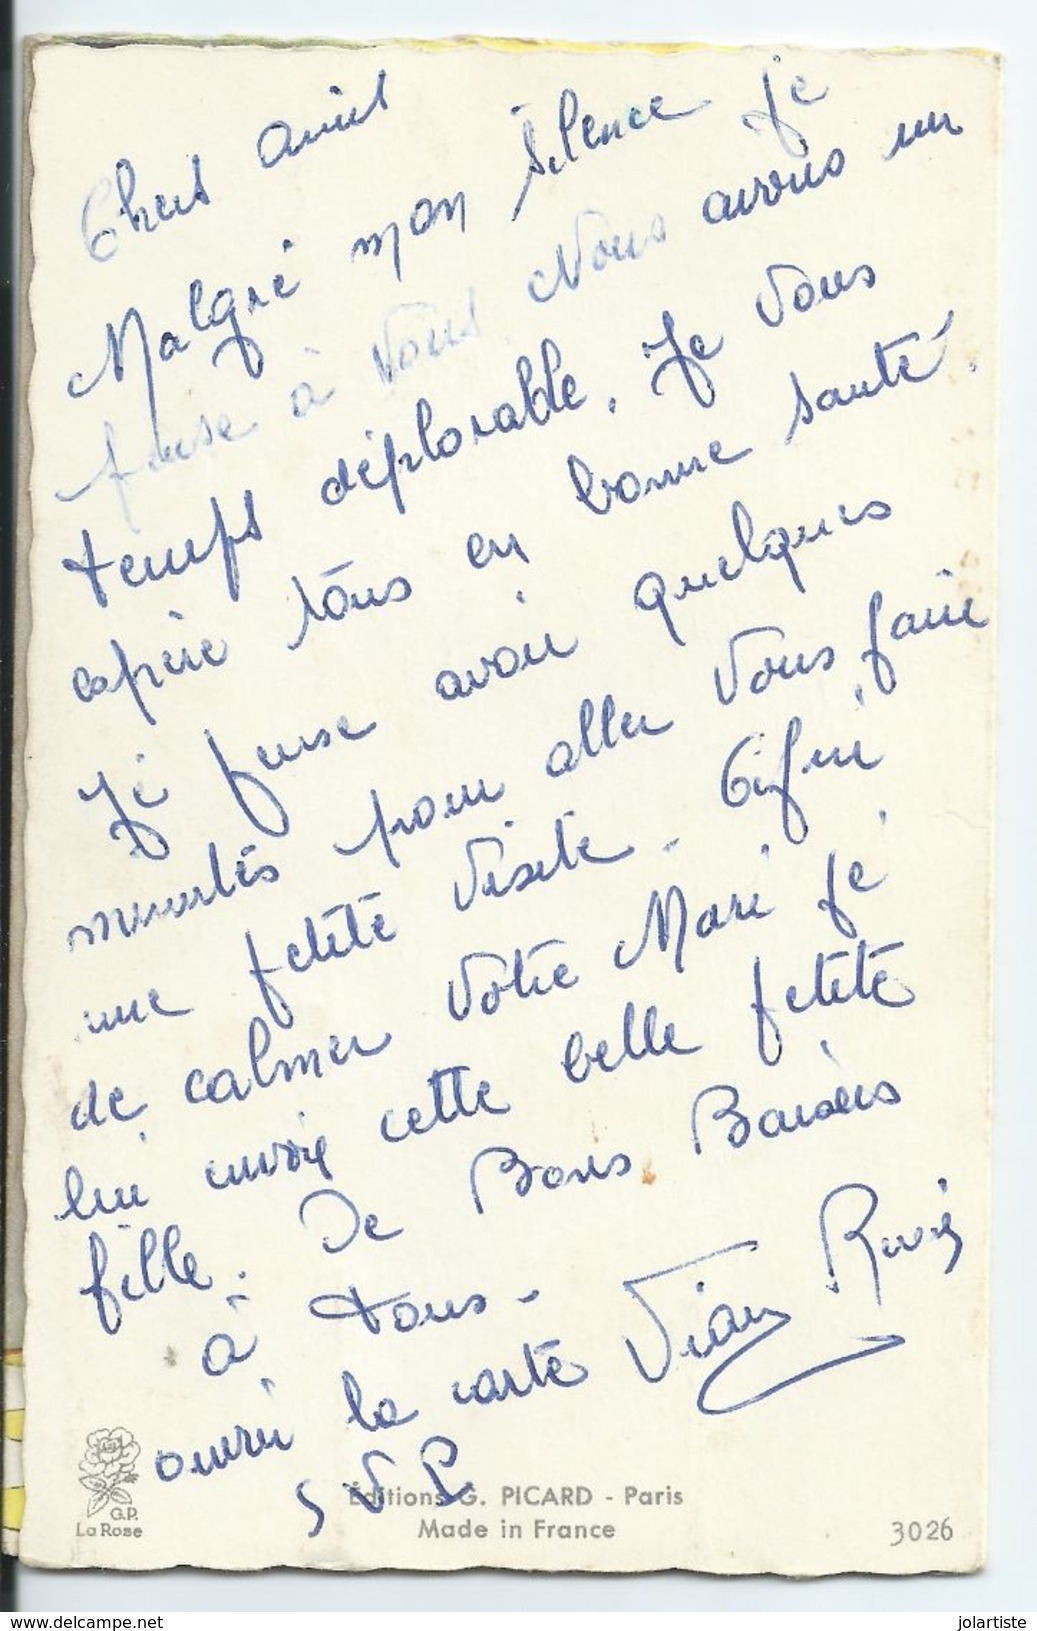 Chers amis
Malgré mon silence je
pense à Vous. Nous avons un
temps déplorable. Je Vous
espère tous en bonne santé.
Je pense avoir quelques
minutes pour aller Vous faire
une petite visite. Afin
de calmer Votre Mari je
lui envoie cette belle petite
fille. De Bons Baisers
à tous.
ouvrir la carte
S V P
G.P.
La Rose
Éditions G. PICARD - Paris
Made in France
3026
jolartiste